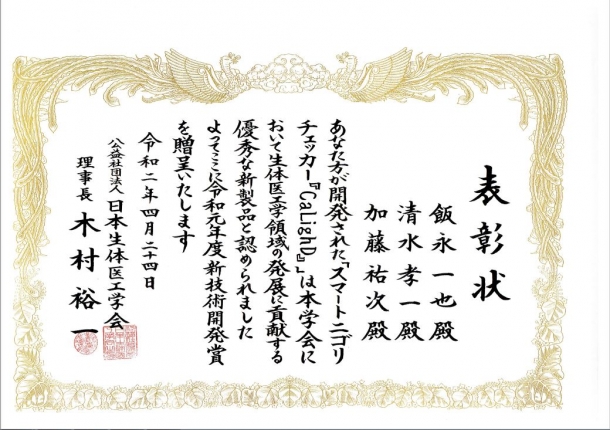 表彰状
飯永一也殿
清水孝一殿
加藤祐次殿
あなた方が開発された「スマートニゴリ
チェッカー『CaLighD』」は本学会に
おいて生体医工学領域の発展に貢献する
優秀な新製品と認められました
よってここに令和元年度新技術開発賞
を贈呈いたします
令和二年四月二十四日
公益社団法人日本生体医工学会
理事長 木村裕一